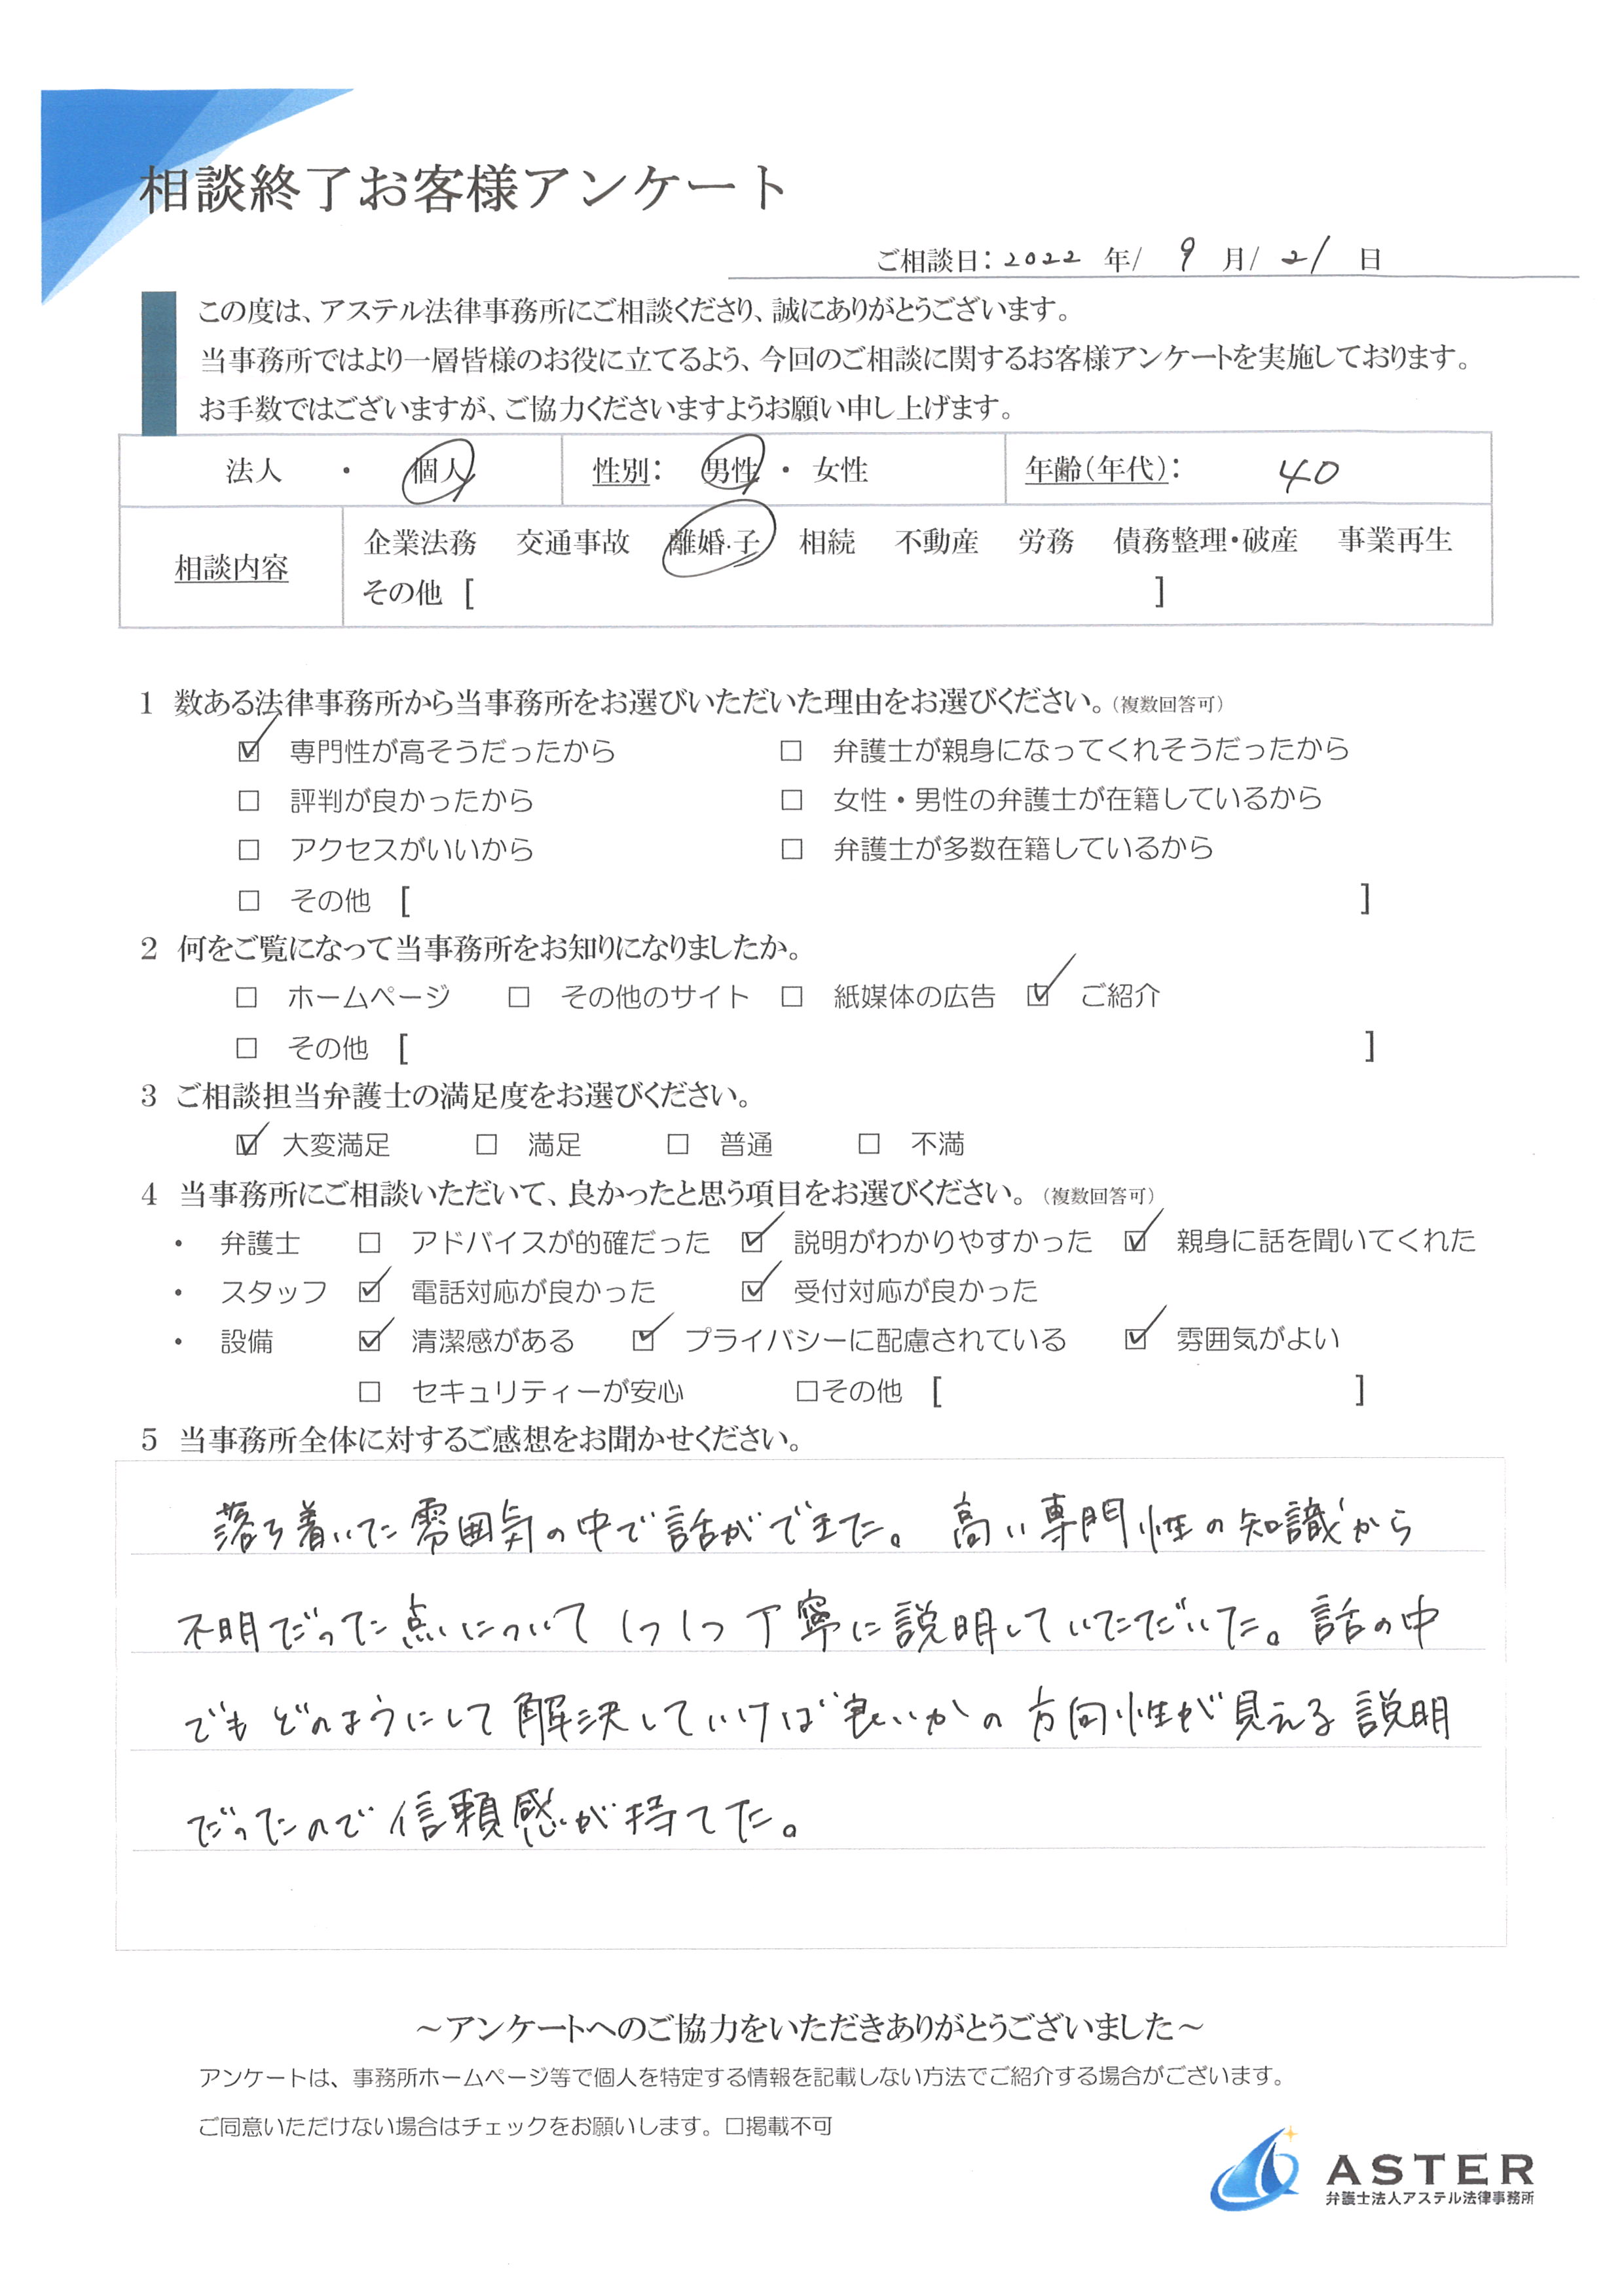 相談終了お客様アンケート
ご相談日：2022 年/ 9 月/ 21 日
この度は、アステル法律事務所にご相談くださり、誠にありがとうございます。
当事務所ではより一層皆様のお役に立てるよう、今回のご相談に関するお客様アンケートを実施しております。
お手数ではございますが、ご協力くださいますようお願い申し上げます。
法人 ・ 個人 性別： 男性 ・ 女性 年齢（年代）： 40
相談内容 企業法務 交通事故 離婚・子 相続 不動産 労務 債務整理・破産 事業再生
その他 [ ]
1 数ある法律事務所から当事務所をお選びいただいた理由をお選びください。（複数回答可）
☑ 専門性が高そうだったから □ 弁護士が親身になってくれそうだったから
□ 評判が良かったから □ 女性・男性の弁護士が在籍しているから
□ アクセスがいいから □ 弁護士が多数在籍しているから
□ その他 [ ]
2 何をご覧になって当事務所をお知りになりましたか。
□ ホームページ □ その他のサイト □ 紙媒体の広告 ☑ ご紹介
□ その他 [ ]
3 ご相談担当弁護士の満足度をお選びください。
☑ 大変満足 □ 満足 □ 普通 □ 不満
4 当事務所にご相談いただいて、良かったと思う項目をお選びください。（複数回答可）
・ 弁護士 □ アドバイスが的確だった ☑ 説明がわかりやすかった ☑ 親身に話を聞いてくれた
・ スタッフ ☑ 電話対応が良かった ☑ 受付対応が良かった
・ 設備 ☑ 清潔感がある ☑ プライバシーに配慮されている ☑ 雰囲気がよい
□ セキュリティーが安心 □その他 [ ]
5 当事務所全体に対するご感想をお聞かせください。
落ち着いた雰囲気の中で話ができた。高い専門性の知識から
不明だった点について1つ1つ丁寧に説明していただいた。話の中
でもどのようにして解決していけば良いかの方向性が見える説明
だったので信頼感が持てた。
～アンケートへのご協力をいただきありがとうございました～
アンケートは、事務所ホームページ等で個人を特定する情報を記載しない方法でご紹介する場合がございます。
ご同意いただけない場合はチェックをお願いします。□掲載不可
ASTER
弁護士法人アステル法律事務所